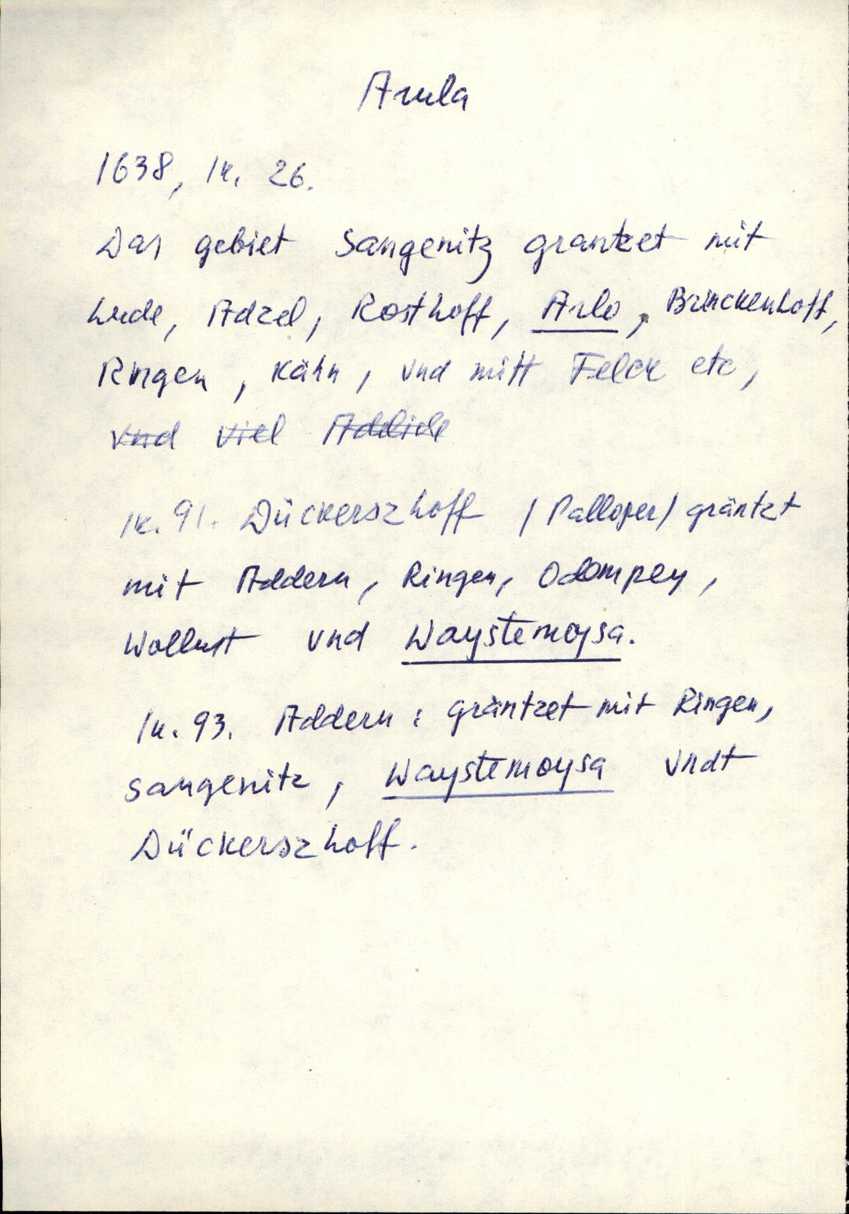 Arula
1638, lk. 26.
Das gebiet Sangenitz grantzet mit
hude, Adzel, Rosthoff, Arlo, Brinckenhoff,
Ringen, Kähn, vnd mitt Felck etc,
vnd viel Addliche
lk. 91. Dückerszhoff /Palloper/ gräntzt
mit Addern, Ringen, Odompey,
Wollust vnd Waystemoysa.
lk. 93. Addern: gräntzet mit Ringen,
Sangenitz, Waystemoysa vndt
Dückerszhoff.